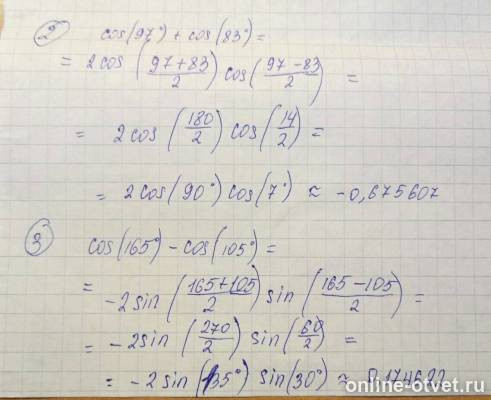 2 cos(97°) + cos(83°) =
= 2cos((97+83)/2) cos((97-83)/2) =
= 2cos(180/2) cos(14/2) =
= 2cos(90°) cos(7°) ≈ -0,675607
3 cos(165°) - cos(105°) =
= -2sin((165+105)/2) sin((165-105)/2) =
= -2sin(270/2) sin(60/2) =
= -2sin(135°) sin(30°) ≈ 0,174622
online-otvet.ru